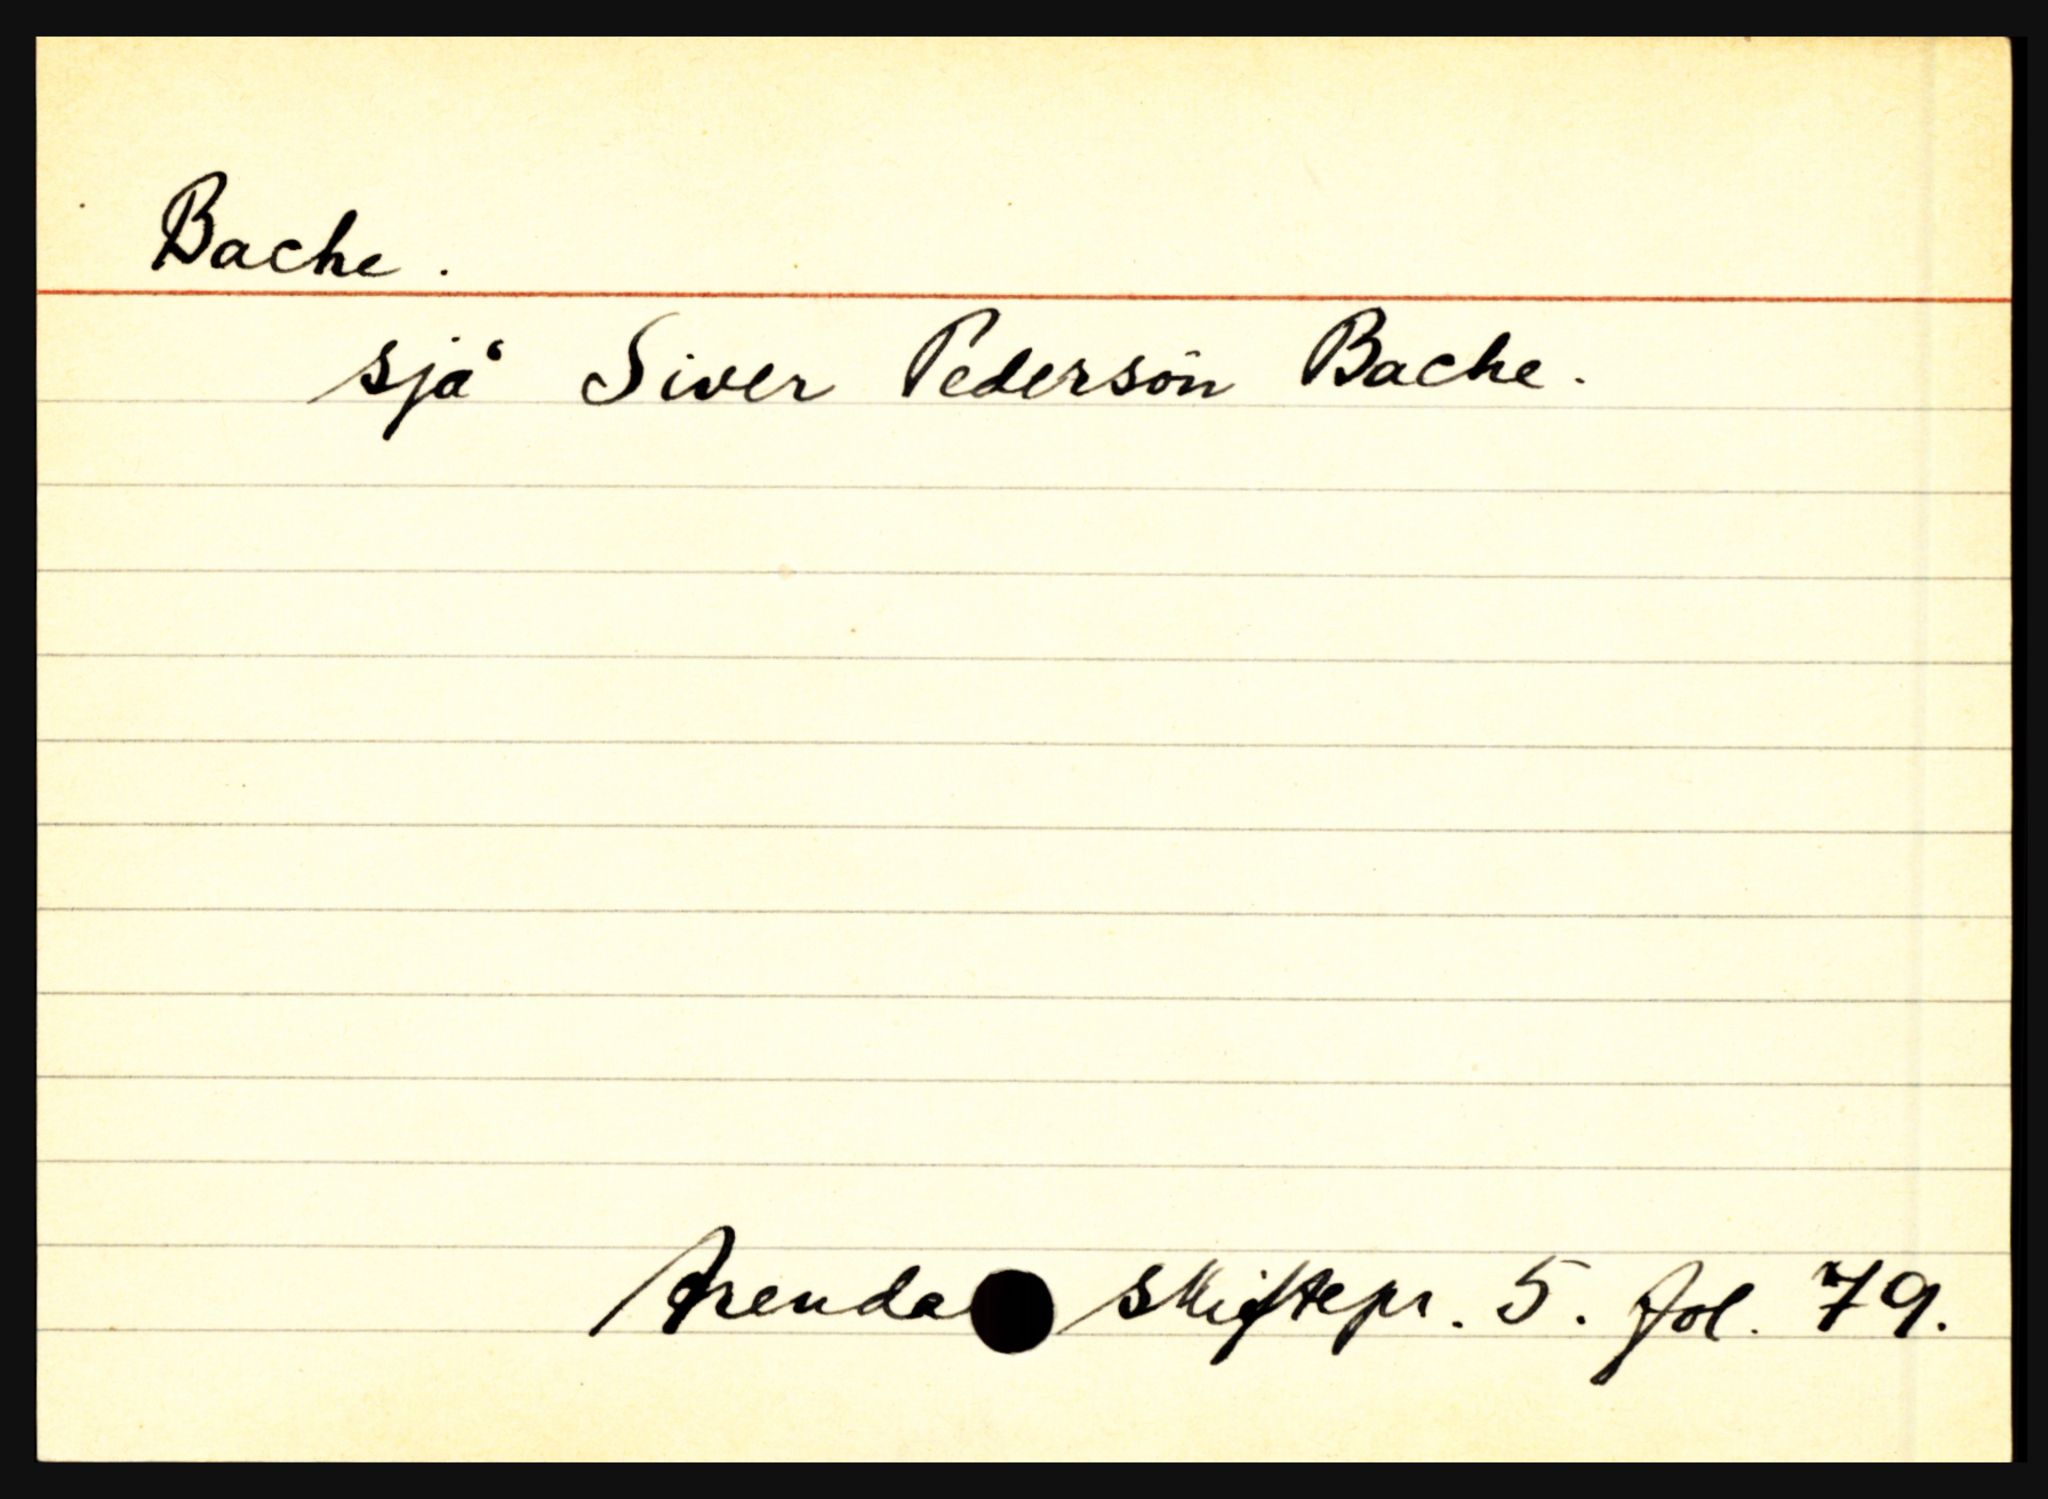 Bache.
sjå Siver Pedersön Bache.
Arendal skiftepr. 5. fol. 79.